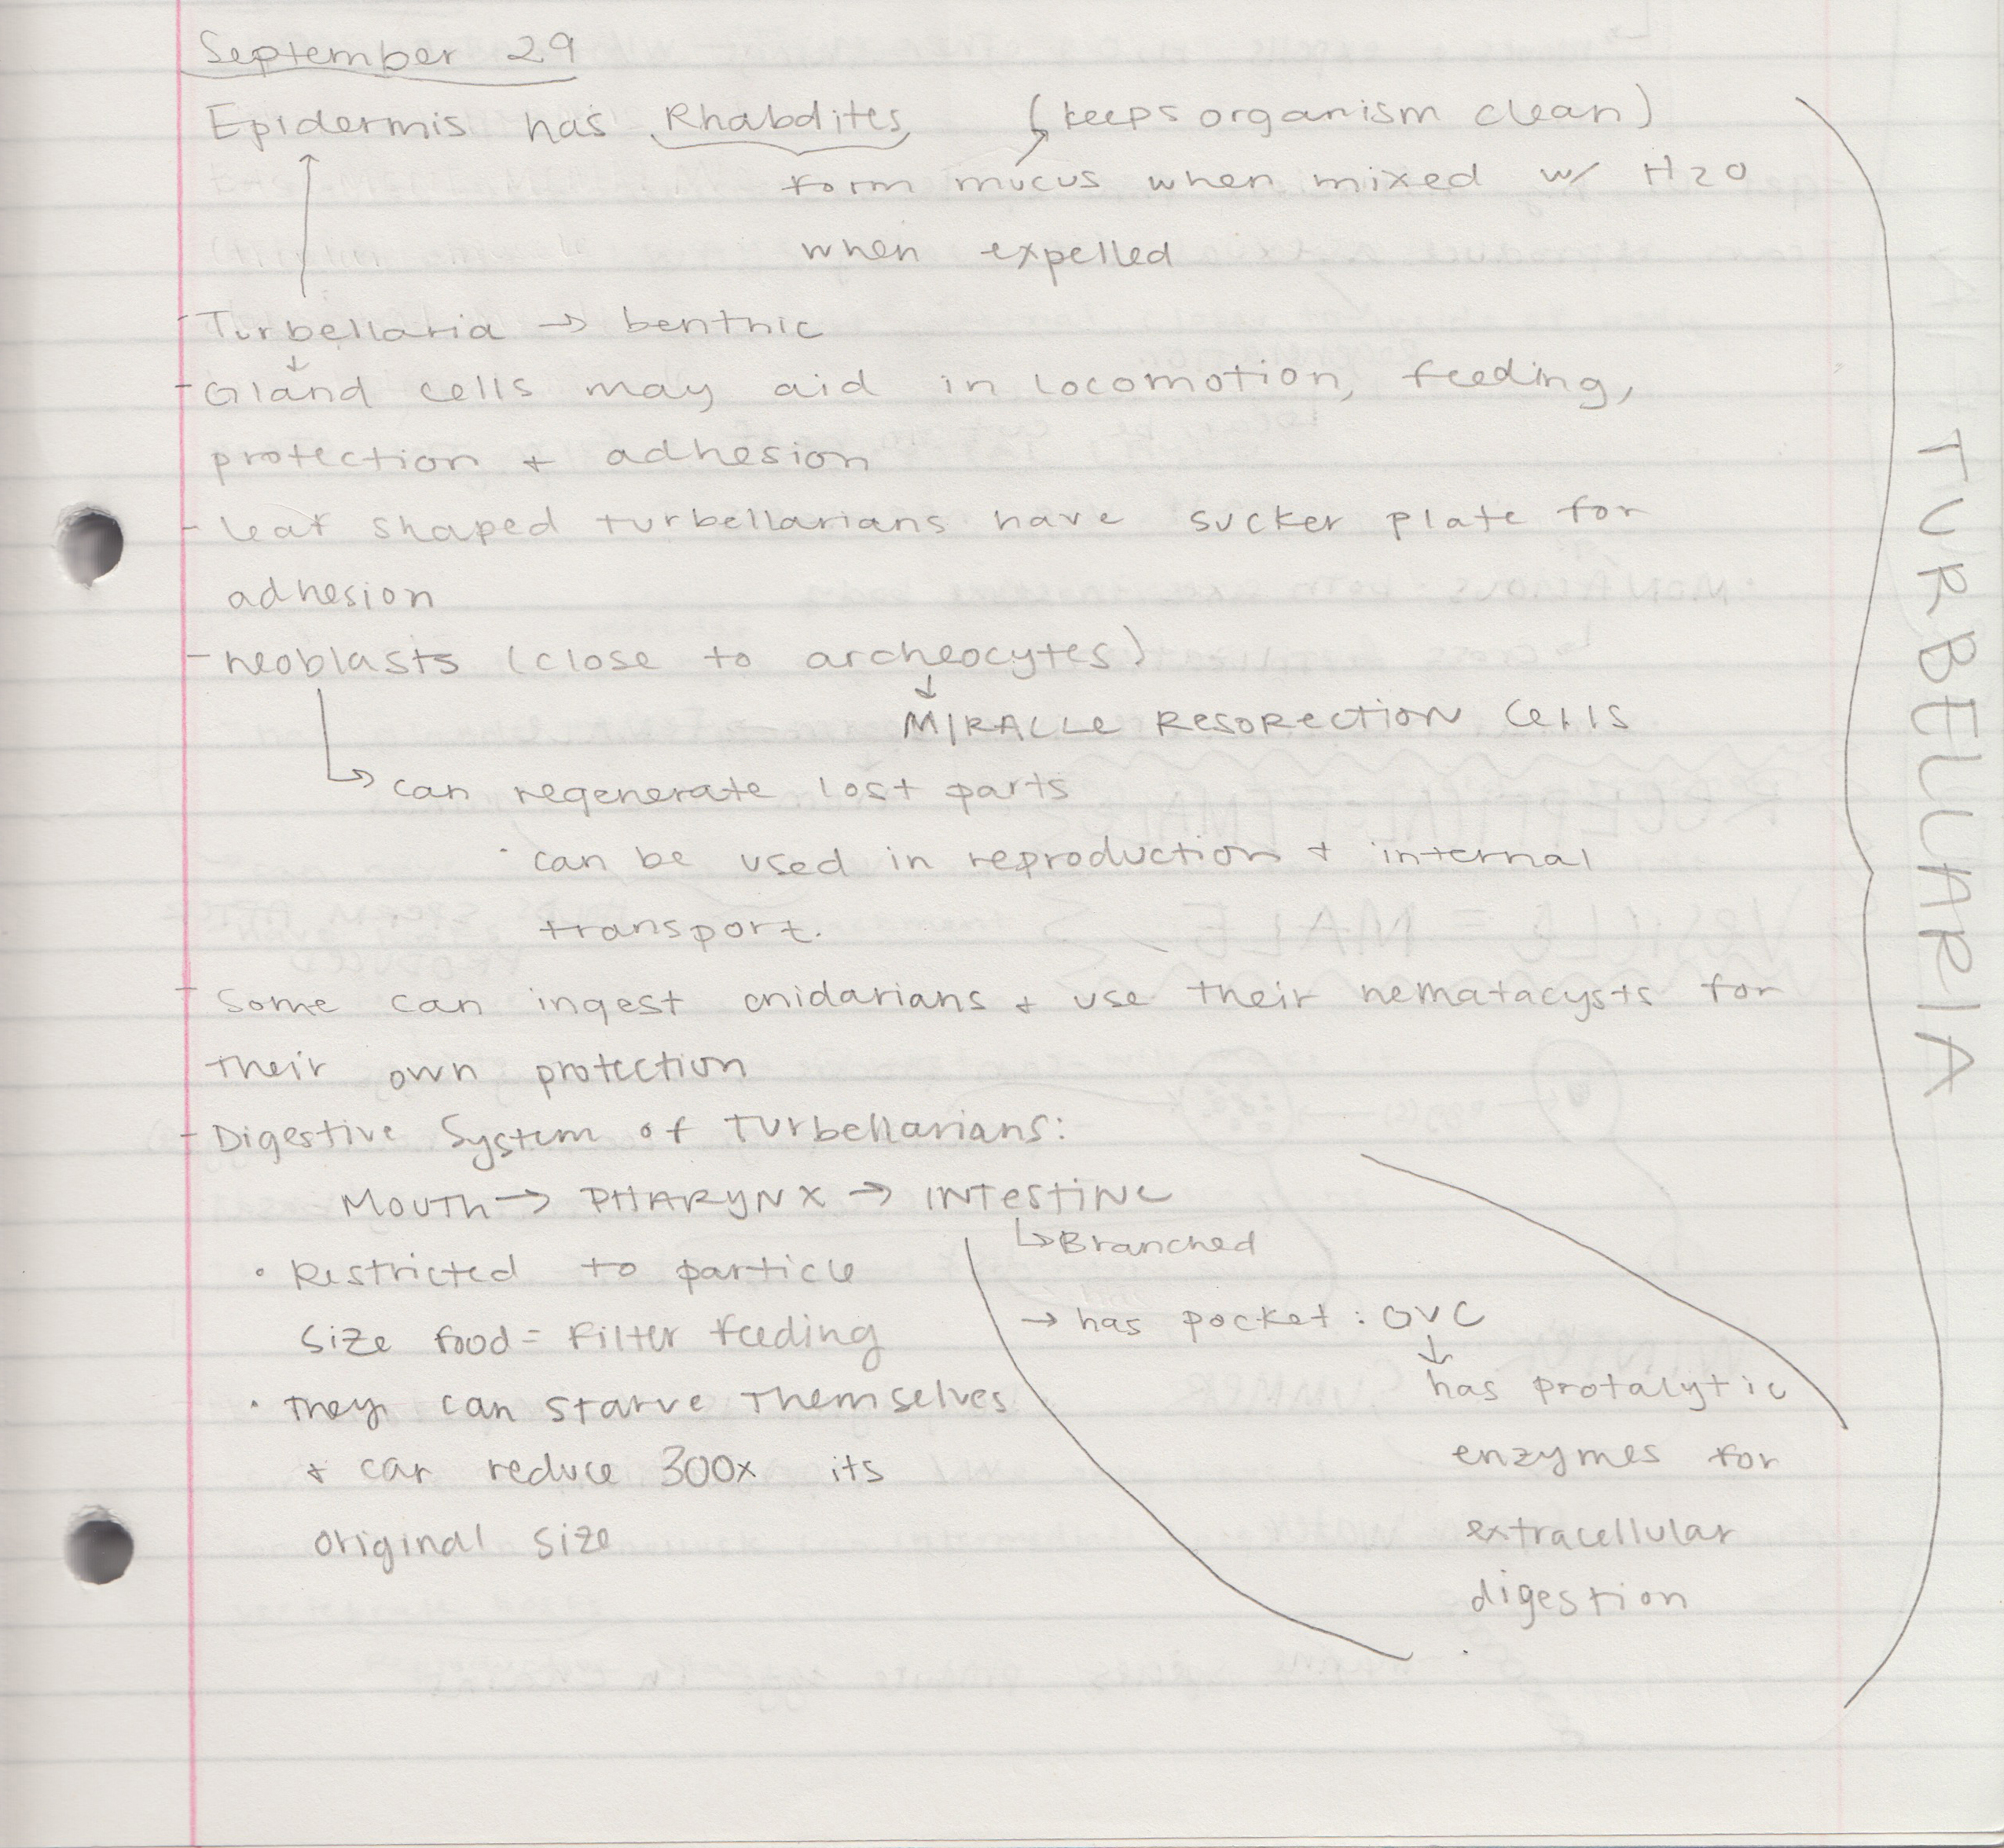 September 29
Epidermis has Rhabdites (keeps organism clean)
form mucus when mixed w/ H2O
when expelled
- Turbellaria → benthic
- Gland cells may aid in locomotion, feeding,
protection + adhesion
- leaf shaped turbellarians have sucker plate for
adhesion
- neoblasts (close to archeocytes)
↓
MIRACLE RESORECTION CELLS
↳ can regenerate lost parts
· can be used in reproduction + internal
transport.
- Some can ingest cnidarians + use their nematacysts for
their own protection
- Digestive System of Turbellarians:
MOUTH → PHARYNX → INTESTINE
↳ Branched
• Restricted to particle
size food = Filter feeding
→ has pocket: GVC
↓
• They can starve themselves
+ can reduce 300x its
original size
has protalytic
enzymes for
extracellular
digestion
TURBELLARIA